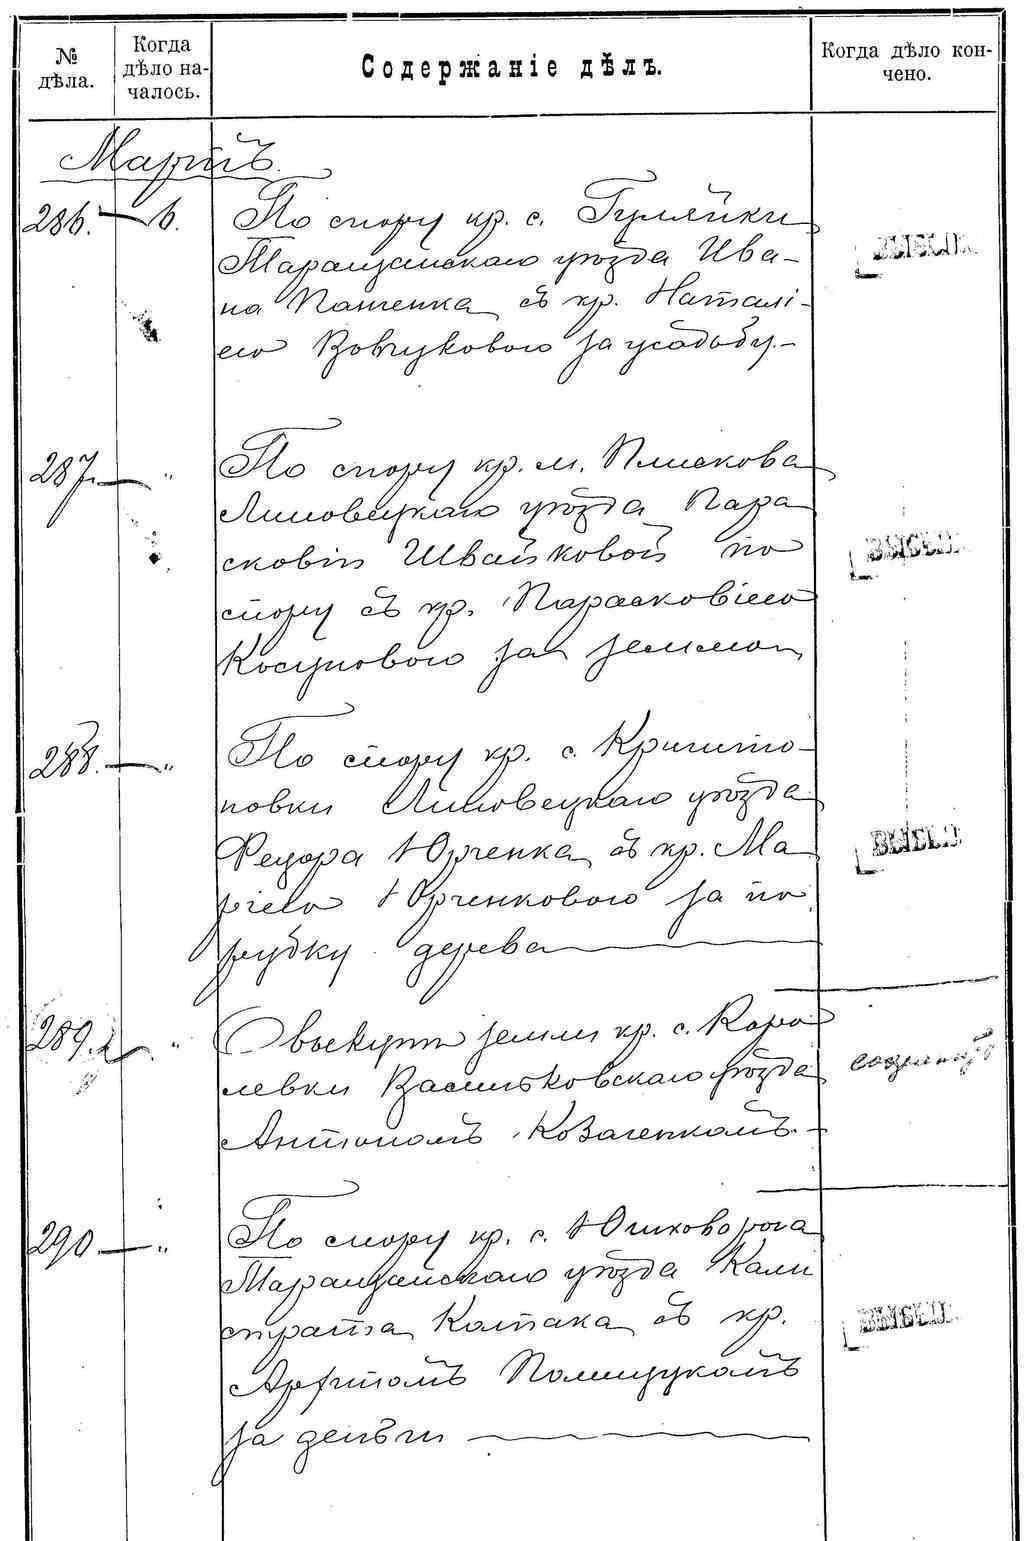 № дѣла.
Когда дѣло началось.
Содержаніе дѣлъ.
Когда дѣло кончено.
Мартъ.
286. 6. По спору кр. с. Гуляйки
Таращанскаго уѣзда Ива-
на Панченка съ кр. Наталі-
ею Вовчуковою за усадьбу.-
287. " По спору кр. м. Плискова
Липовецкаго уѣзда Пара
сковіи Швайковой по
спору съ кр. Парасковіею
за землю
288. " По спору кр. с. Кришто-
повки Липовецкаго уѣзда
Федора Юрченка съ кр. Ма
ріею Юрченковою за по
рубку дерева
289. " О выкупѣ земли кр. с. Каро
левки Васильковскаго уѣзда
Антономъ Козаченкомъ.-
290 " По спору кр. с. Юшковарога
Таращанскаго уѣзда Кали
страта Колпака съ кр.
Полищукомъ
за деньги